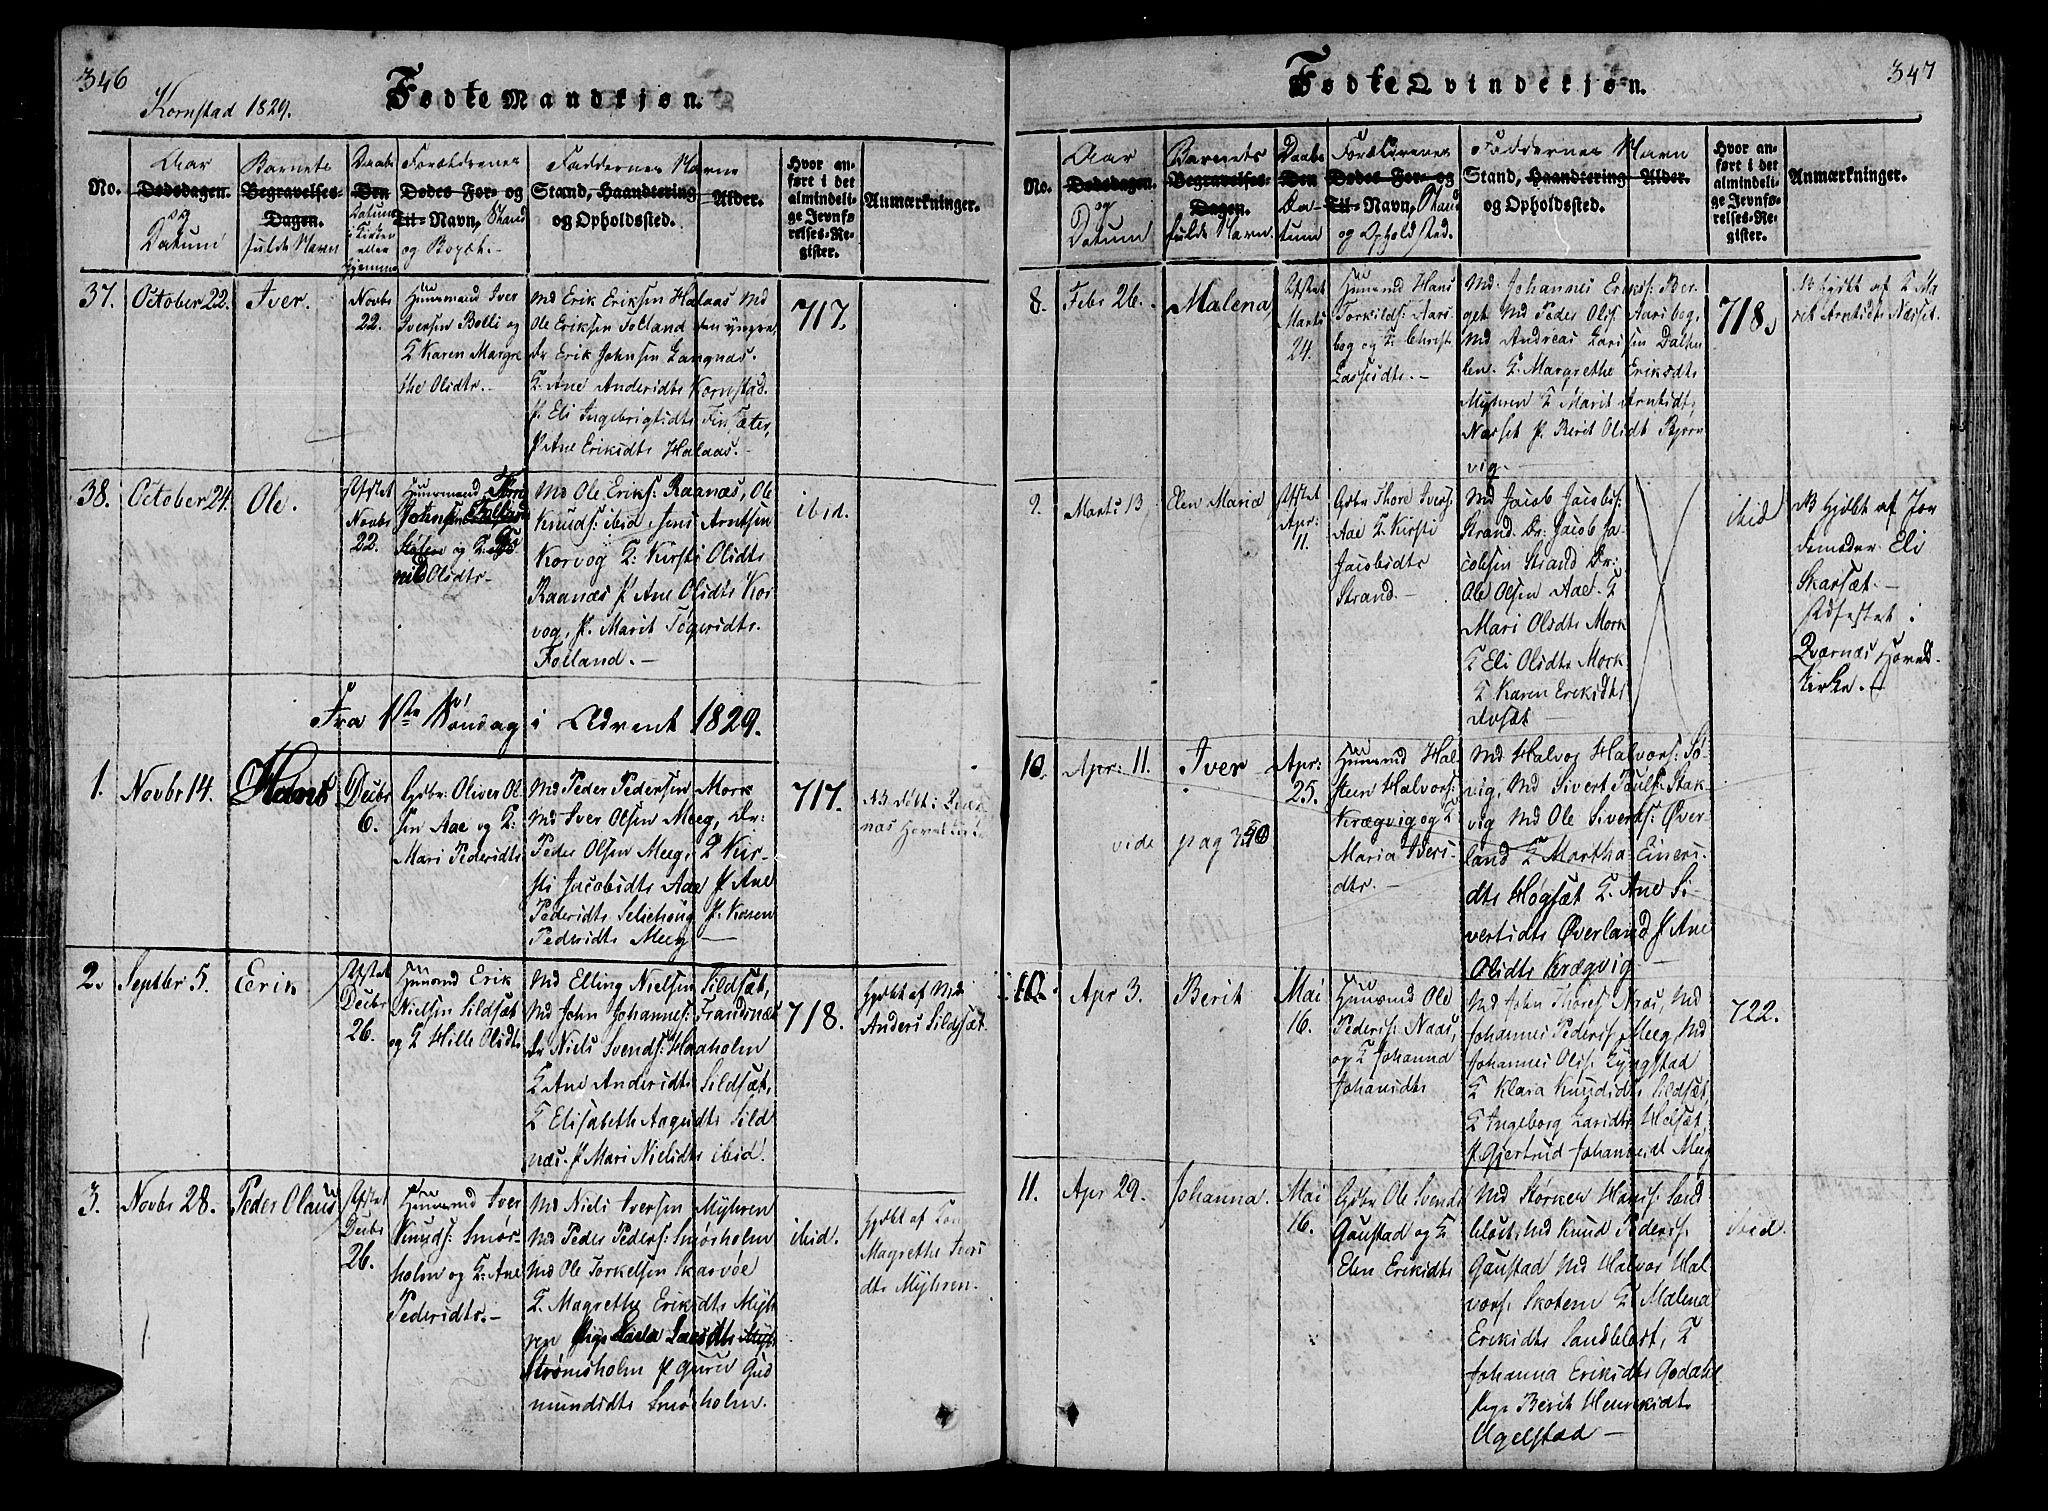 346
Kornstad 1829.
Fødte Mandkjøn.
No.
Aar
Dødsdagen.
og
Datum
Barnets
Begravelses-
Dagen.
fulde Navn
Daabs
Den
Datum
i Kirken
eller
hjemme
Forældrenes
Dødes For- og
Til-Navn, Stand
og Bopæl.
Faddernes Navn
Stand, Haandtering
og Opholdssted.
Alder.
Hvor an-
ført i det
almindeli-
ge Jevnfø-
relses-Re-
gister.
Anmærkninger.
37.
October 22.
Iver.
Novbr
22.
Huusmand Iver
Iversen Bolli og
K Karen Margre
the Olsdtr.-
Md Erik Eriksen Halaas Md
Ole Eriksen Folland den yngre,
Dr Erik Johnsen Langnæs.
K. Ane Andersdtr Kornstad.
P. Eli Ingebrigtsdtr Finsæter,
P. Ane Eriksdtr Halaas.-
717.
38.
October 24.
Ole.
Novbr
22.
Huusmand
og K:
Olsdtr-
Md Ole Eriks: Raanæs, Ole
Knuds: ibid, Jens Arntsen
Korvog K: Kirsti Olsdtr
Raanæs P Ane Olsdtr Kor
vog, P. Marit
Folland.-
ibid.
Fra 1ste Søndag i Advent 1829.
1.
Novbr 14.
Hans
Decbr
6.
Gdbr: Oliver Ol
sen Aae og K:
Mari Pedersdtr
Md Peder Pedersen Mork
Md Iver Olsen Meeg, Dr:
Peder Olsen Meeg, K Kir-
sti Jacobsdtr Aae P Ane
Pedersdtr Seliehoug P. Karen
Pedersdtr Meeg-
717.
NB døbt i
næs Hoved
2.
Septbr 5.
Eerik
Decbr
26.
Huusmd Erik
Nielsen Sildsæt
og K Hille Olsdtr
Md Elling Nielsen Sildsæt,
Md John Johannes: Frandsnæs
Dr Niels Svends: Haaholm
K Ane Andersdtr Sildsæt,
K Elisabeth Aagesdtr Sild
næs. P Mari Nielsdtr ibid.
718.
hjdbt af Md
Anders Sildsæt
3.
Novbr 28.
Peder Olaus
Decbr
26.
Huusmand Iver
Knuds: Smørs-
holm og K: Ane
Pedersdtr.-
Md Niels Iversen Myhren
Md Peder Peders: Smørsholm
Md Ole Torkelsen Skarvøe
K. Magrethe Eriksdtr Myh
ren
Strømsholm P Guru Gud
mundsdtr Smørsholm.
ibid.
hjdbt af
Magrethe
dtr Myhren.
Fødte Qvindekjøn.
347
No.
Aar
Dødsdagen.
og
Datum
Barnets
Begravelses-
Dagen.
fulde Navn.
Daabs
Den
Da-
tum
Forældrenes
Dødes For- og
Til-Navn, Stand
og Opholdsted.
Faddernes Navn
Stand, Haandtering
og Opholdssted.
Alder.
Hvor an-
ført i det
almindeli-
ge Jevnfø-
relses-Re-
gister.
Anmærkninger.
8.
Febr 26.
Malena
Marts
24.
Huusmd Hans
Torkilds: Aars
bog og K: Christ.
Lassesdtr.-
Md. Johannes Eriks: Ber
get Md Peder Ols: Aarsbog,
Md Andreas Larsen Dalhu
len. K. Margrethe Eriksdtr
Myhren K Marit Arntsdtr,
Næsset P. Berit Olsdt Bjørn
vig.
718.
NB hjdbt af K Ma
rit Arntsdtr Næsset.
9.
Marts 13
Elen Maria
Apr:
11.
Gdbr Thore Ivers:
Aae K Kirsti
Jacobsdtr
Strand.-
Md Jacob Jacobs:
Strand. Dr: Jacob Ja-
cobsen Strand Dr:
Ole Olsen Aae. K
Mari Olsdtr Mork
K Eli Olsdtr Mork
K Karen Eriksdtr
ibid
NB hjdbt af Jor
demoder Eli
Skarsæt.-
Stdfestet i
Qvernæs Hoved-
kirke.-
10.
Apr: 11.
Iver
Apr:
25.
Huusmd Hal
steen Halvors:
Krægvig og K
Maria Ivers-
dtr.-
Md Halvog Halvors: Sø-
vig, Md Sivert Pauls: Stak-
vig Md Ole Siverts: Øver-
land K Martha Einers-
dtr Høgsæt K. Ane Si-
vertsdtr Øverland P Ane
Olsdtr Krægvig-
vide pag 350
10.
Apr 3.
Berit
Mai
16.
Huusmd Ole
Peders: Naas,
og K Johanna
Johansdtr
Md John Thores: Naas, Md
Johannes Peders: Meeg, Md
Johannes Ols: Lyngstad
K Klara Knudsdtr Sildsæt,
K Ingeborg Larsdtr Helsæt,
P. Gjertrud Johannesdt Meeg
722.
11.
Apr 29.
Johanna.
Mai
16.
Gdbr Ole Svends
Gaustad og K
Elen Eriksdtr
Md Størker Hans: Sand
bløst, Md Knud Peders:
Gaustad Md Halvor Hal-
vors: Skotem K Malena
Eriksdtr Sandbløst, K
Johanna Eriksdtr Godahl
Pige Berit Henriksdtr
Ugelstad -
ibid.